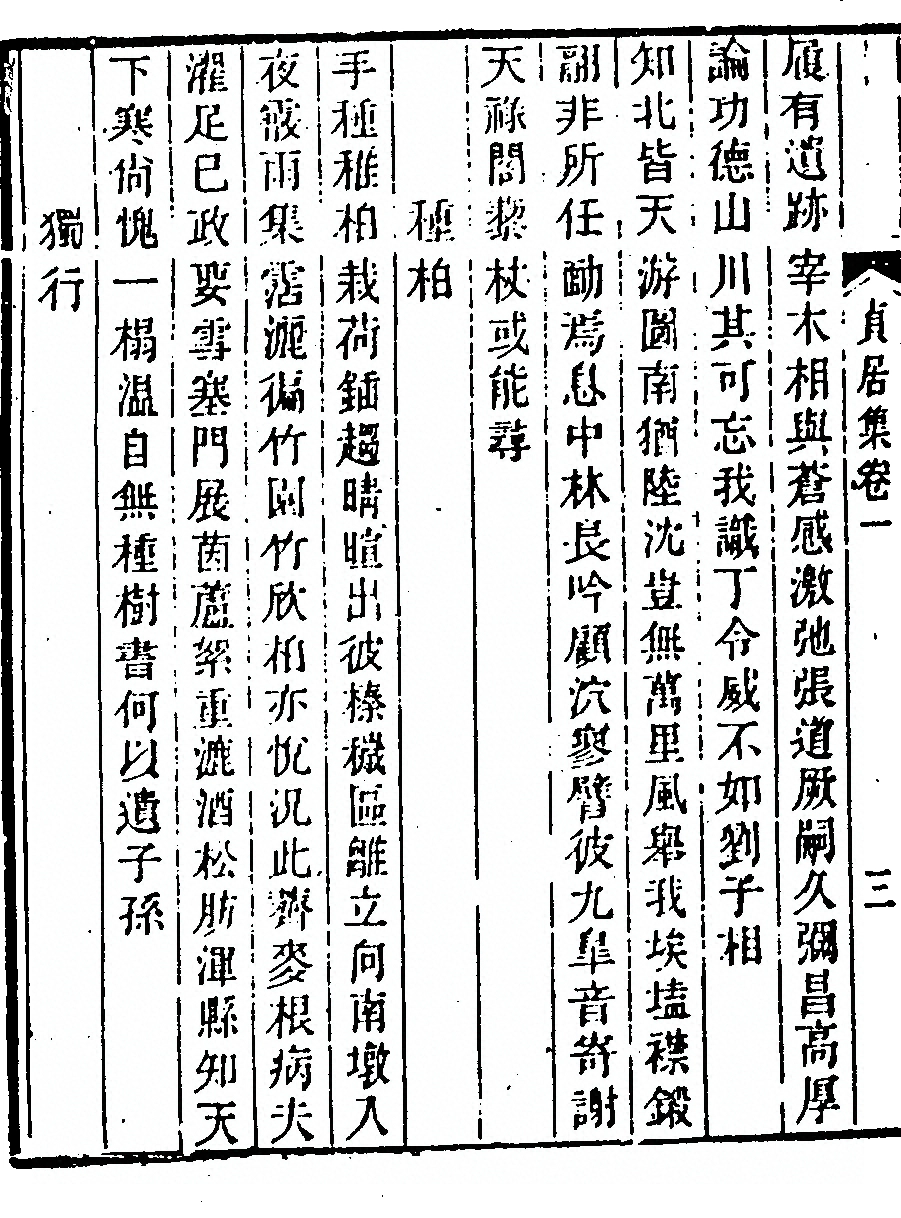 貞居集卷一 三
履有遺跡宰木相與蒼感激弛張道厥嗣久彌昌高厚
論功德山川其可忘我識丁令威不如劉子相
知北皆天游圖南猶陸沈豈無萬里風舉我埃壒襟鍛
翮非所任勔焉息中林長吟顧泬寥臂彼九皐音寄謝
天祿閣藜杖或能尋
種柏
手種稚柏栽荷鍤趨晴暄出彼榛穢區離立向南墩入
夜霰雨集霑灑徧竹園竹欣柏亦悅況此薺麥根病夫
濯足巳政要雪塞門展茵蘆絮重漉酒松肪渾縣知天
下寒尙愧一榻溫自無種樹書何以遺子孫
獨行